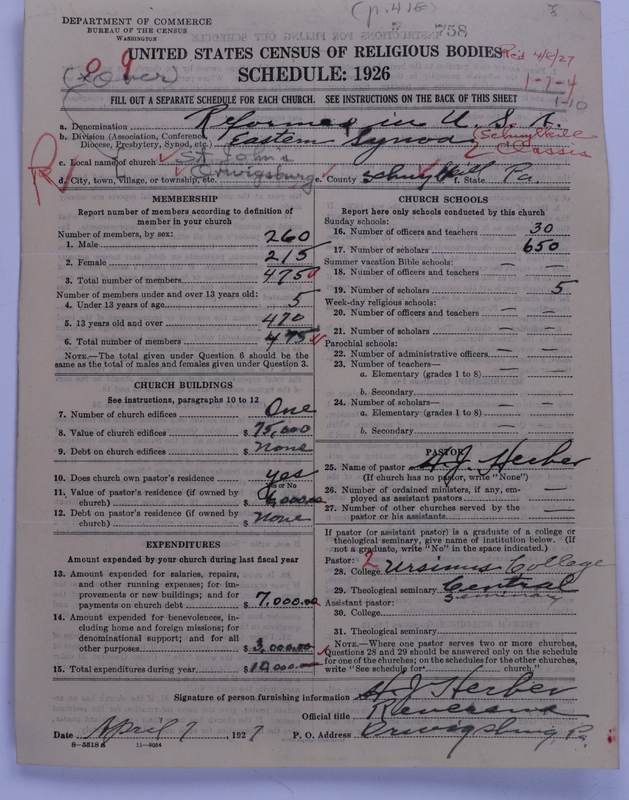 (p. 418)
3
DEPARTMENT OF COMMERCE
BUREAU OF THE CENSUS
WASHINGTON
758
UNITED STATES CENSUS OF RELIGIOUS BODIES
Rec'd 4/8/27
SCHEDULE: 1926
1-7-4
1-10
FILL OUT A SEPARATE SCHEDULE FOR EACH CHURCH. SEE INSTRUCTIONS ON THE BACK OF THIS SHEET
a. Denomination Reformed in U.S.A.
b. Division (Association, Conference, Diocese, Presbytery, Synod, etc.) Eastern Synod { Schuylkill Classis
c. Local name of church St. John's
d. City, town, village, or township, etc. Orwigsburg e. County Schuylkill f. State Pa.
MEMBERSHIP
Report number of members according to definition of
member in your church
Number of members, by sex:
1. Male 260
2. Female 215
3. Total number of members 475
Number of members under and over 13 years old:
4. Under 13 years of age 5
5. 13 years old and over 470
6. Total number of members 475
NOTE.—The total given under Question 6 should be the
same as the total of males and females given under Question 3.
CHURCH BUILDINGS
See instructions, paragraphs 10 to 12
7. Number of church edifices One
8. Value of church edifices $ 75,000
9. Debt on church edifices $ None
10. Does church own pastor's residence yes
Yes or No
11. Value of pastor's residence (if owned by
church) $ 6,000.00
12. Debt on pastor's residence (if owned by
church) $ None
EXPENDITURES
Amount expended by your church during last fiscal year
13. Amount expended for salaries, repairs,
and other running expenses; for im-
provements or new buildings; and for
payments on church debt $ 7,000.00
14. Amount expended for benevolences, in-
cluding home and foreign missions; for
denominational support; and for all
other purposes $ 3,000.00
15. Total expenditures during year $ 10,000
CHURCH SCHOOLS
Report here only schools conducted by this church
Sunday schools:
16. Number of officers and teachers 30
17. Number of scholars 650
Summer vacation Bible schools:
18. Number of officers and teachers — —
19. Number of scholars 5
Week-day religious schools:
20. Number of officers and teachers — —
21. Number of scholars — —
Parochial schools:
22. Number of administrative officers — —
23. Number of teachers—
a. Elementary (grades 1 to 8) — —
b. Secondary — —
24. Number of scholars—
a. Elementary (grades 1 to 8) — —
b. Secondary — —
PASTOR
25. Name of pastor H. J. Herber
(If church has no pastor, write "None")
26. Number of ordained ministers, if any, em-
ployed as assistant pastors —
27. Number of other churches served by the
pastor or his assistants —
If pastor (or assistant pastor) is a graduate of a college or
theological seminary, give name of institution below. (If
not a graduate, write "No" in the space indicated.)
Pastor: 2
28. College Ursinus College
29. Theological seminary Central Seminary
Assistant pastor:
30. College
31. Theological seminary
NOTE.—Where one pastor serves two or more churches,
Questions 28 and 29 should be answered only on the schedule
for one of the churches; on the schedules for the other churches,
write "See schedule for church."
Signature of person furnishing information H. J. Herber
Official title Reverend
Date April 7, 1927 P. O. Address Orwigsburg Pa.
8—5518a 11—9054